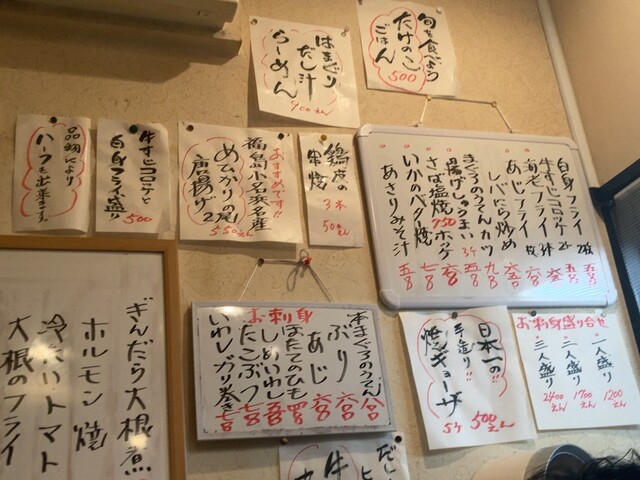 旬を食べよう
たけのこ
ごはん
500
はまぐり
だし汁
らーめん
900えん
品物により
ハーフも出来ます。
牛すじコロッケと
白身フライ盛り
500
おすすめです!!
福島小名浜名産
めひかりの
唐揚げ
550えん
鶏皮の
串焼
3本
50えん
白身フライ 2枚
牛すじコロッケ 2ケ
海老フライ 3本
あじフライ
しばにら炒め
まぐろのうでんカツ
揚げしゅうまい 3ケ
さば塩焼 750 ホッケ
いかのバター焼
あさりみそ汁
お刺身
ぶり
あじ
ほたてのひも
しめいわし
たこぶつ
いわしガリ巻き
日本一の!!
手造り!!
焼ギョーザ
5ケ 500えん
お刺身盛り合せ
一人盛り 1200えん
二人盛り 1700えん
三人盛り 2400えん
ぎんだら大根煮
ホルモン焼
冷たいトマト
大根のフライ
だし
牛